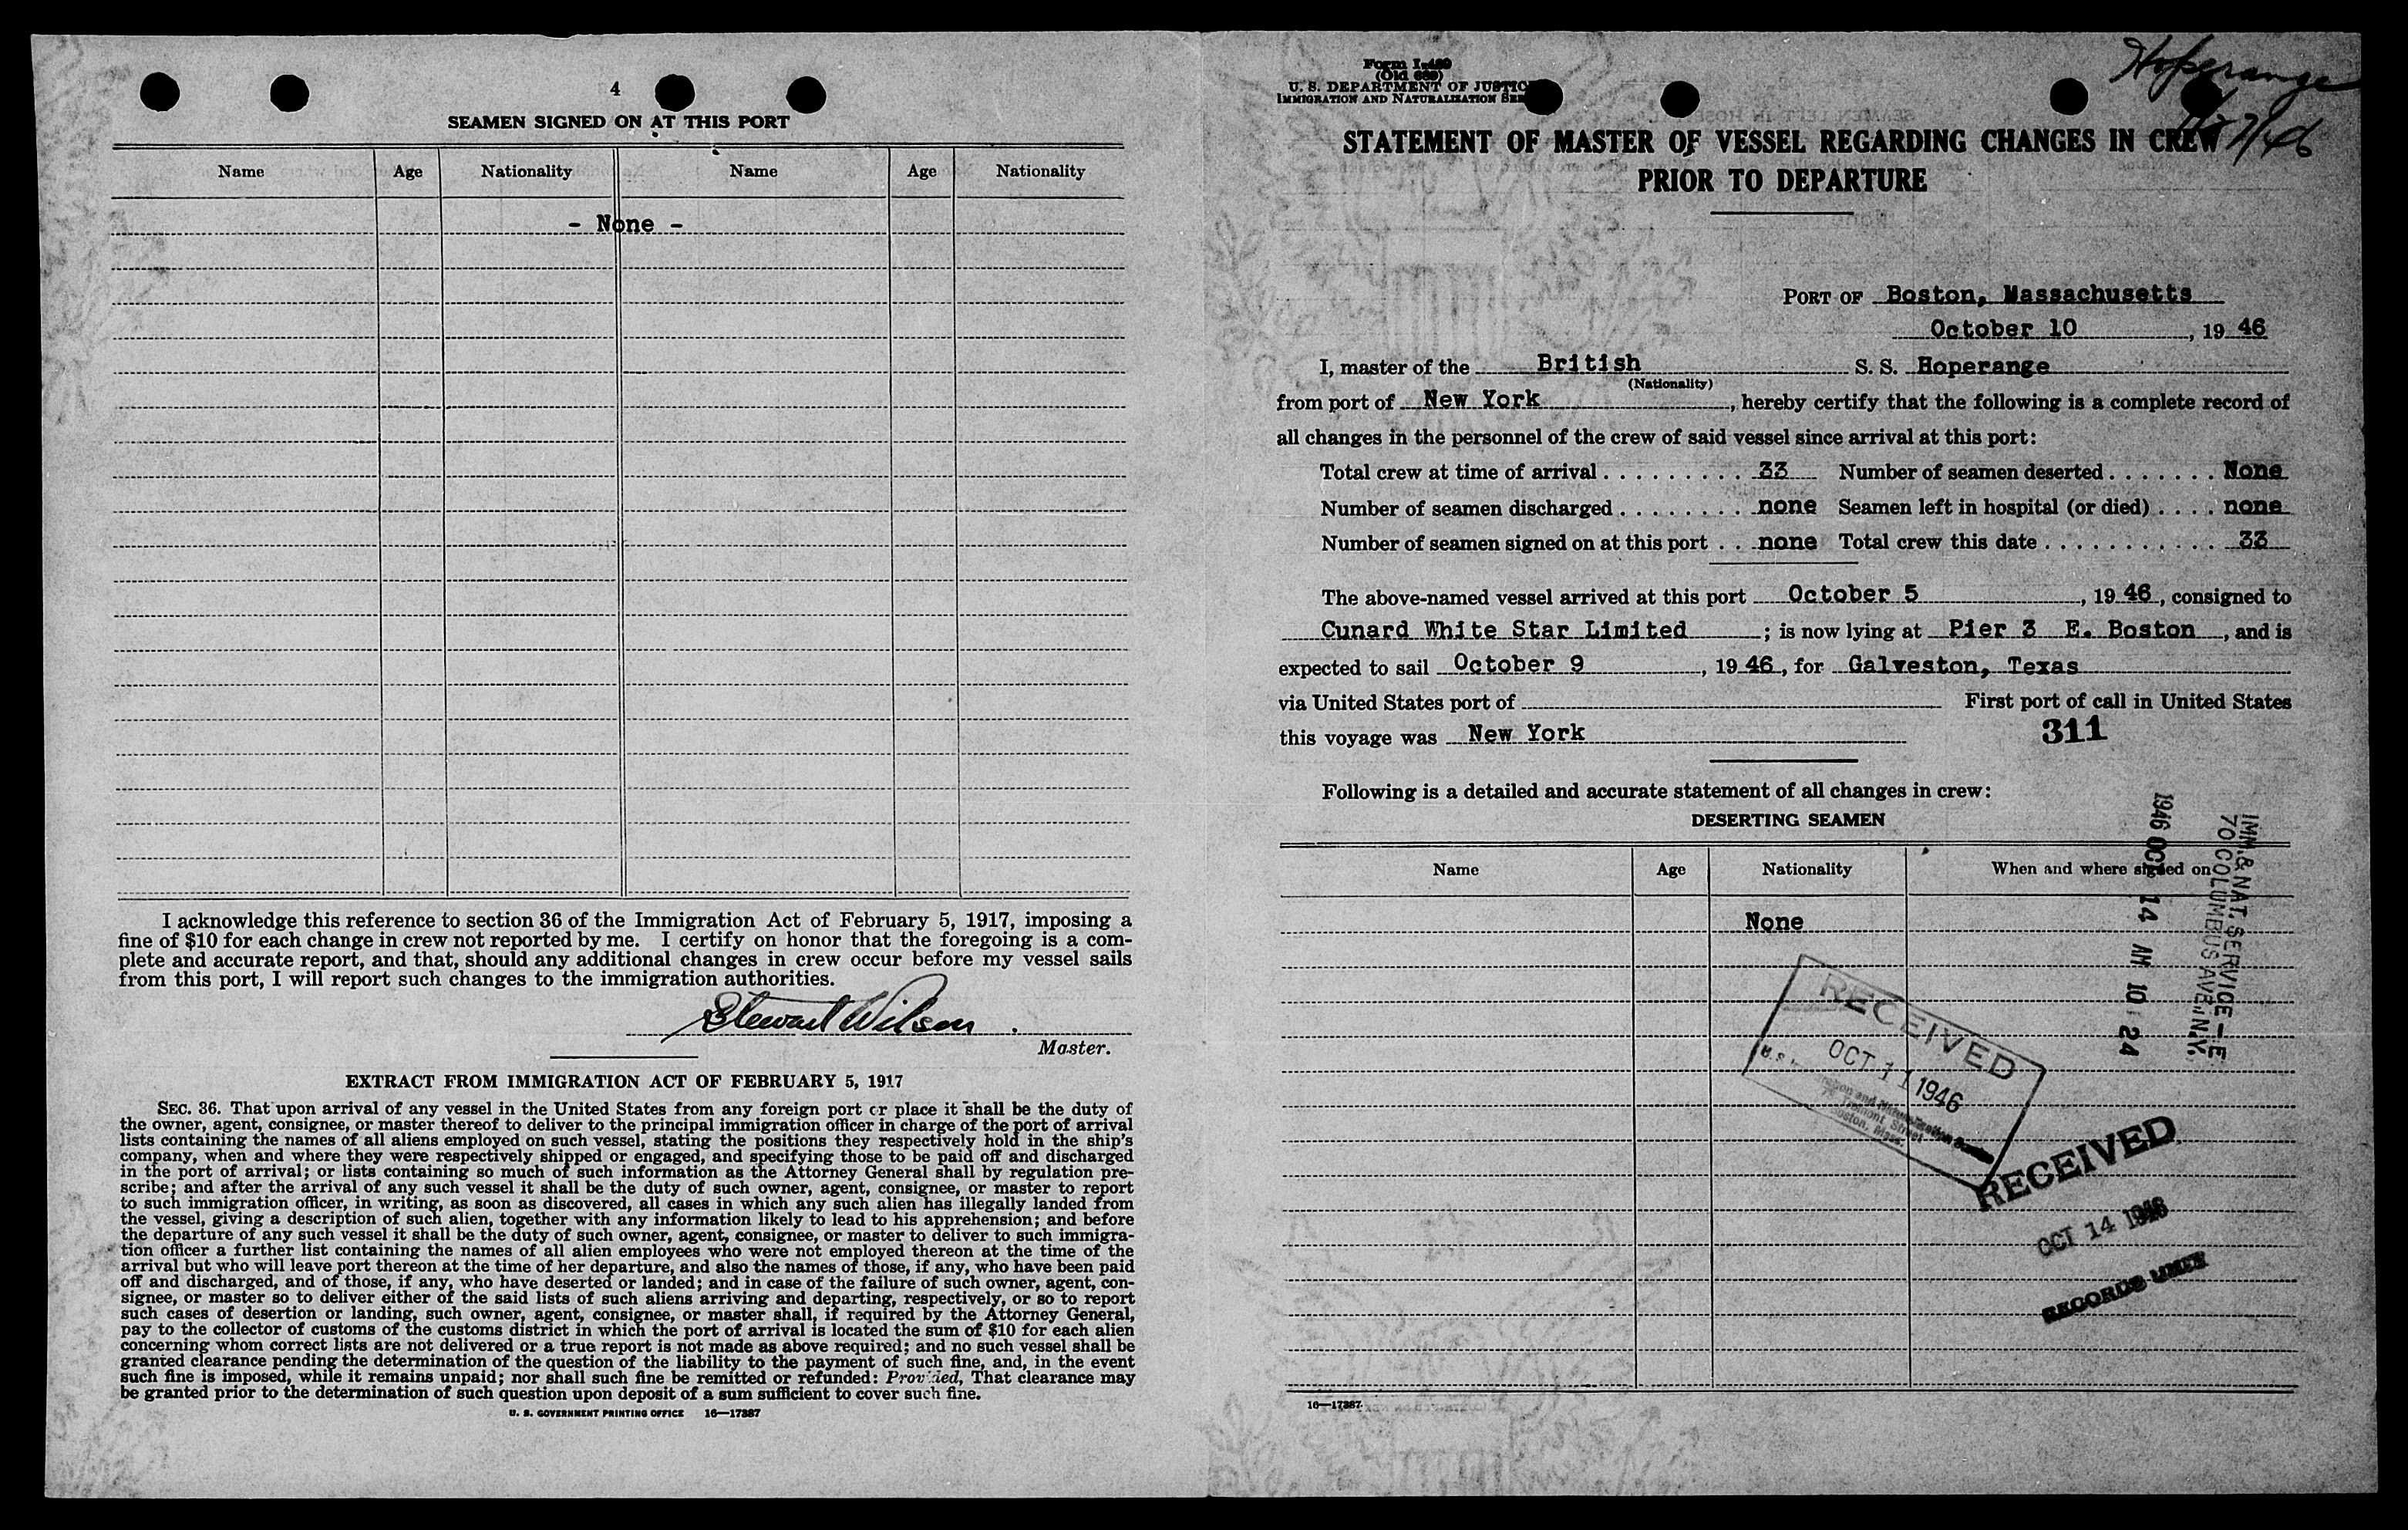 4
SEAMEN SIGNED ON AT THIS PORT
Name Age Nationality Name Age Nationality
- None -
I acknowledge this reference to section 36 of the Immigration Act of February 5, 1917, imposing a
fine of $10 for each change in crew not reported by me. I certify on honor that the foregoing is a com-
plete and accurate report, and that, should any additional changes in crew occur before my vessel sails
from this port, I will report such changes to the immigration authorities.
Stewart Wilson
Master.
EXTRACT FROM IMMIGRATION ACT OF FEBRUARY 5, 1917
SEC. 36. That upon arrival of any vessel in the United States from any foreign port or place it shall be the duty of
the owner, agent, consignee, or master thereof to deliver to the principal immigration officer in charge of the port of arrival
lists containing the names of all aliens employed on such vessel, stating the positions they respectively hold in the ship's
company, when and where they were respectively shipped or engaged, and specifying those to be paid off and discharged
in the port of arrival; or lists containing so much of such information as the Attorney General shall by regulation pre-
scribe; and after the arrival of any such vessel it shall be the duty of such owner, agent, consignee, or master to report
to such immigration officer, in writing, as soon as discovered, all cases in which any such alien has illegally landed from
the vessel, giving a description of such alien, together with any information likely to lead to his apprehension; and before
the departure of any such vessel it shall be the duty of such owner, agent, consignee, or master to deliver to such immigra-
tion officer a further list containing the names of all alien employees who were not employed thereon at the time of the
arrival but who will leave port thereon at the time of her departure, and also the names of those, if any, who have been paid
off and discharged, and of those, if any, who have deserted or landed; and in case of the failure of such owner, agent, con-
signee, or master so to deliver either of the said lists of such aliens arriving and departing, respectively, or so to report
such cases of desertion or landing, such owner, agent, consignee, or master shall, if required by the Attorney General,
pay to the collector of customs of the customs district in which the port of arrival is located the sum of $10 for each alien
concerning whom correct lists are not delivered or a true report is not made as above required; and no such vessel shall be
granted clearance pending the determination of the question of the liability to the payment of such fine, and, in the event
such fine is imposed, while it remains unpaid; nor shall such fine be remitted or refunded: Provided, That clearance may
be granted prior to the determination of such question upon deposit of a sum sufficient to cover such fine.
U. S. GOVERNMENT PRINTING OFFICE 16—17387
Form I-489
(Old 689)
U. S. DEPARTMENT OF JUSTICE
IMMIGRATION AND NATURALIZATION SER
Hoperange
STATEMENT OF MASTER OF VESSEL REGARDING CHANGES IN CREW
PRIOR TO DEPARTURE
PORT OF Boston, Massachusetts
October 10, 19 46
I, master of the British S. S. Hoperange
(Nationality)
from port of New York, hereby certify that the following is a complete record of
all changes in the personnel of the crew of said vessel since arrival at this port:
Total crew at time of arrival . . . . . . . . . 33 Number of seamen deserted . . . . . . . None
Number of seamen discharged . . . . . . . . none Seamen left in hospital (or died) . . . . none
Number of seamen signed on at this port . . none Total crew this date . . . . . . . . . . . 33
The above-named vessel arrived at this port October 5, 19 46, consigned to
Cunard White Star Limited; is now lying at Pier 3 E. Boston, and is
expected to sail October 9, 19 46, for Galveston, Texas
via United States port of First port of call in United States
this voyage was New York 311
Following is a detailed and accurate statement of all changes in crew:
DESERTING SEAMEN
Name Age Nationality When and where signed on
None
IMM. & NAT. SERVICE - E.
70 COLUMBUS AVE., N.Y.
1946 OCT 14 AM 10 24
RECEIVED
OCT 11 1946
Boston, Mass.
RECEIVED
OCT 14 1946
RECORDS UNIT
16—17387